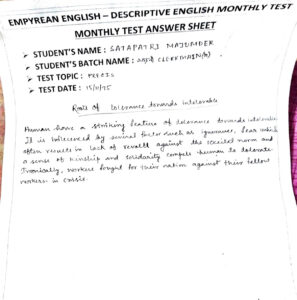 EMPYREAN ENGLISH – DESCRIPTIVE ENGLISH MONTHLY TEST
MONTHLY TEST ANSWER SHEET
➤ STUDENT'S NAME : SATAPATRI MAJUMDER
➤ STUDENT'S BATCH NAME : CLERKMAIN
➤ TEST TOPIC : PRECIS
➤ TEST DATE :
of tolerance towards intolerable
Human have a striking feature of tolerance towards intolerable.
It is influenced by several factor such as ignorance, fear which
often results in lack of revolt against the societal norm and
a sense of kinship and solidarity compels human to tolerate.
Ironically, workers fought for their nation against their fellow
workers in crisis.